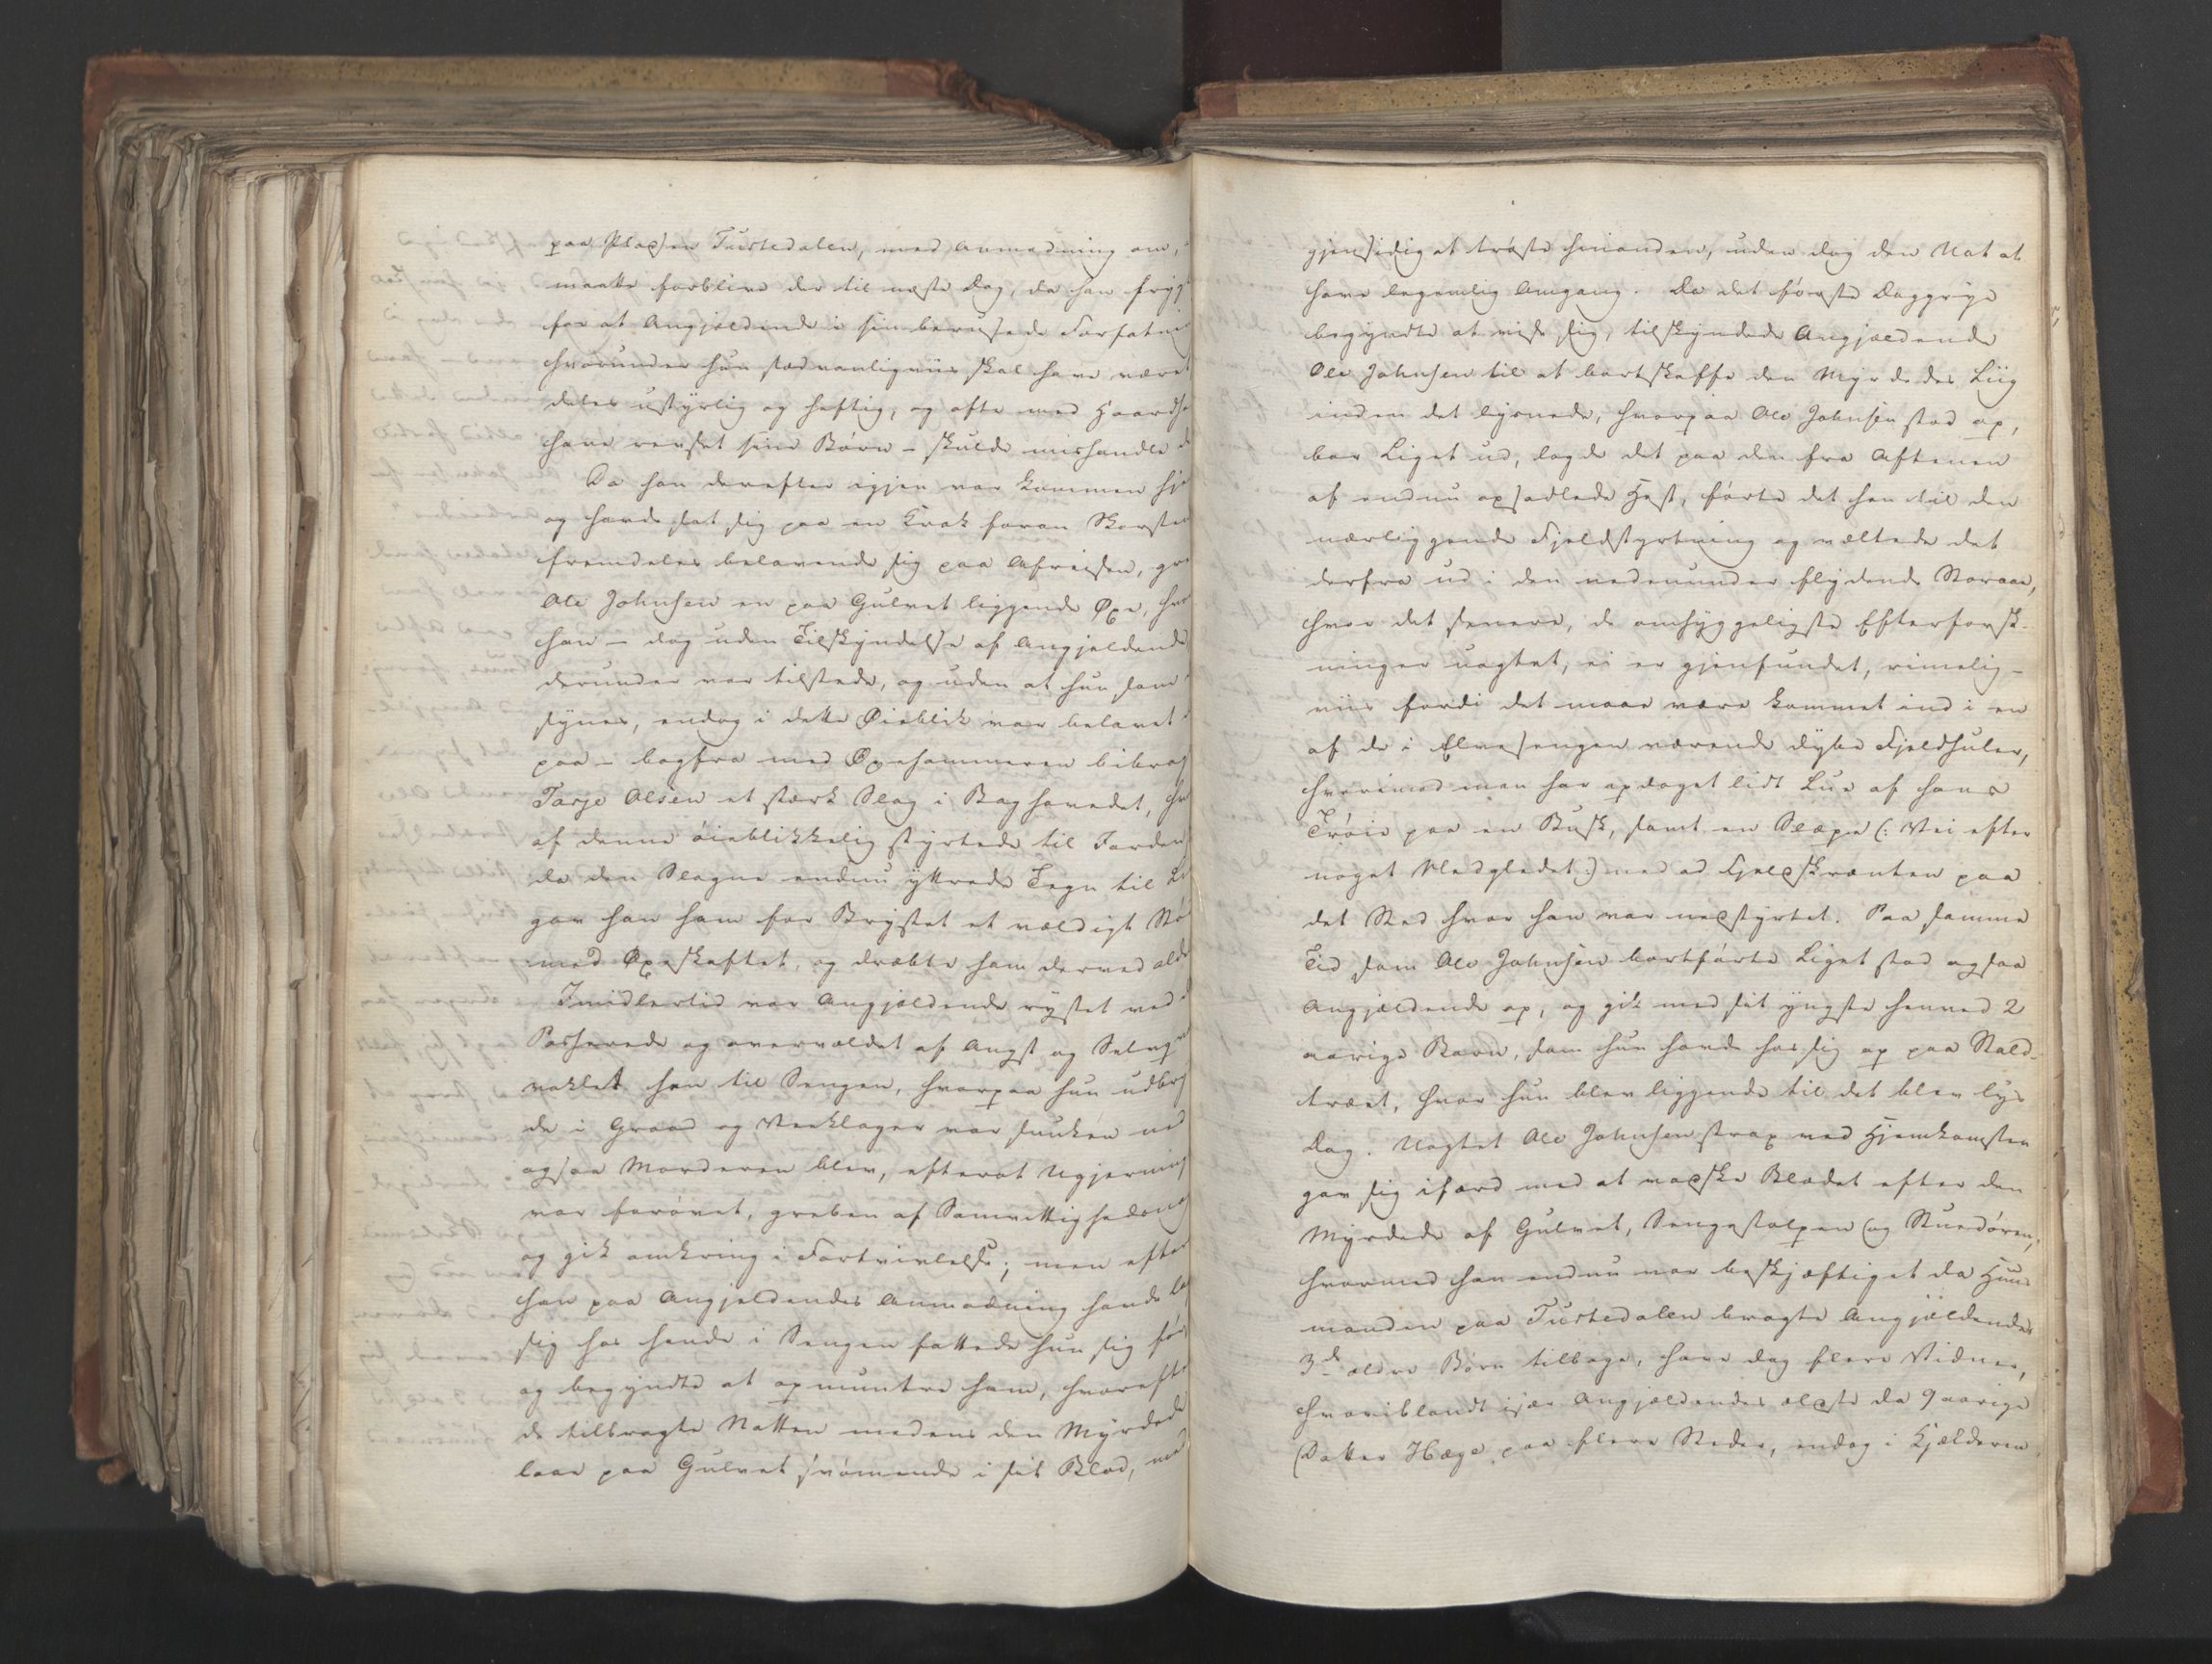 paa Pladsen Tustedalen, med Anmodning om,
maatte forblive der til næste Dag, da han fryg
for at Angjældende i sin berusede Forfatni
hvorunder hun sædvanligviis skal have været
deles ustyrlig og heftig, og ofte med Haardh
have revset sine Børn – skulde mishandle d
Da han derefter igjen var kommen hje
og havde sat sig paa en Krak foran Skorsten
fremdeles belavende sig paa Afreisen, gre
Ole Johnsen en paa Gulvet liggende Øxe, hvo
han – dog uden Tilskyndelse af Angjeldende
derunder var tilstede, og uden at hun som
synes, endog i dette Øieblik var belavet
paa – bagfra med Øxehammeren bibrag
Tarje Olsen et stærk Slag i Baghovedet, hv
af denne øieblikkelig styrtede til Jorden
da den Slagne endnu yttrede Tegn til Li
gav han ham for Brystet et vældigt Stø
med Øxeskaftet, og dræbte ham derved alde
Imidlertid var Angjældende rystet ved
Passerede og overvældet af Angst og Sælvgr
vaklet hen til Sengen, hvorpaa hun udbry
de i Graad og Veeklager var sunken ned
ogsaa Morderen blev, efterat Ugjerning
var forøvet, greben af Samvittighedsna
og gik omkring i Fortvivlelse; men efter
han paa Angjeldendes Anmodning havde la
sig hos hende i Sengen fattede hun sig før
og begyndte at opmuntre ham, hvorefte
de tilbragte Natten medens den Myrdede
laae paa Gulvet svømmende i sit Blod, med
gjensidig at trøste hinanden, uden dog den Nat at
have legemlig Omgang. Da det første Daggrye
begyndte at vise sig, tilskyndede Angjældende
Ole Johnsen til at bortskaffe den Myrdedes Liig
inden det lysnede, hvorpaa Ole Johnsen stod op,
bar Liget ud, lagde det paa den fra Aftenen
af endnu opsadlede Hest, førte det hen til den
nærliggende Fjeldstyrtning og væltede det
derfra ud i den nedenunder flydende Storaae,
hvor det senere, de omhyggeligste Efterforsk-
ninger uagtet, ei er gjenfundet, rimelig-
viis fordi det maae være kommet ind i en
af de i Elvesengen værende dybe Fjeldhuler,
hvorimod man har opdaget lidt Lue af hans
Trøie paa en Busk, samt en Slæpe (: Vei efter
noget Nedgledet :) ned ad Fjeldskrænten paa
det Sted hvor han var nedstyrtet. Paa samme
Tid som Ole Johnsen bortførte Liget stod ogsaa
Angjældende op, og gik med sit yngste henved 2
aarige Barn, som hun havde hos sig op paa Stald-
træet, hvor hun blev liggende til det blev lys
Dag. Uagtet Ole Johnsen strax ved Hjemkomsten
gav sig ifærd med at vadske Blodet efter den
Myrdede af Gulvet, Sengestolpen og Stuedøren,
hvormed han endnu var beskjæftiget da Huus
manden paa Tustedalen bragte Angjældendes
3de ældre Børn tilbage, have dog flere Vidner,
hvoriblandt især Angjældendes ældste da 9 aarige
Datter Hæge paa flere Steder, endog i Kjælderen